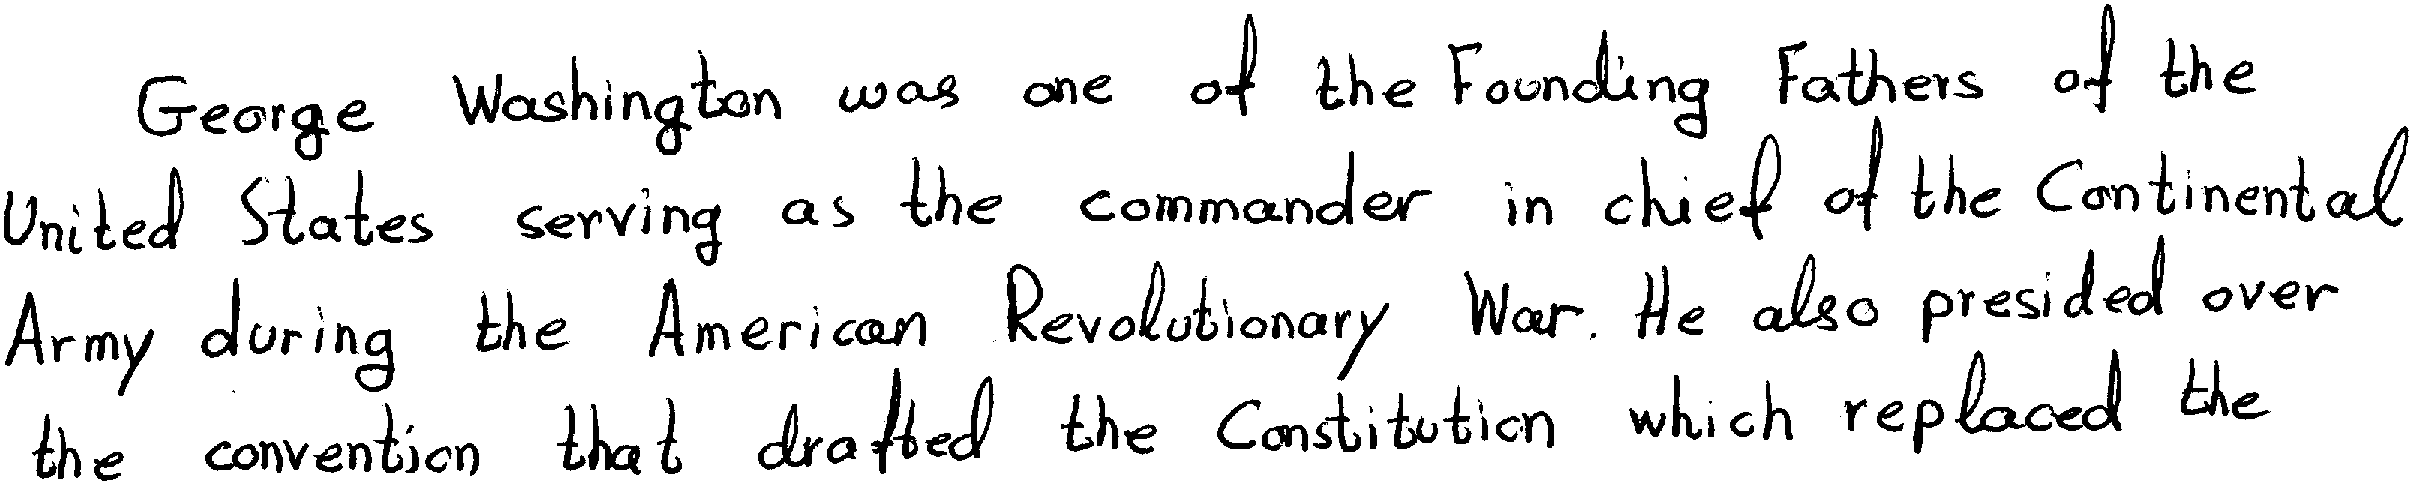 George Washington was one of the Founding Fathers of the
United States serving as the commander in chief of the Continental
Army during the American Revolutionary War. He also presided over
the convention that drafted the Constitution which replaced the